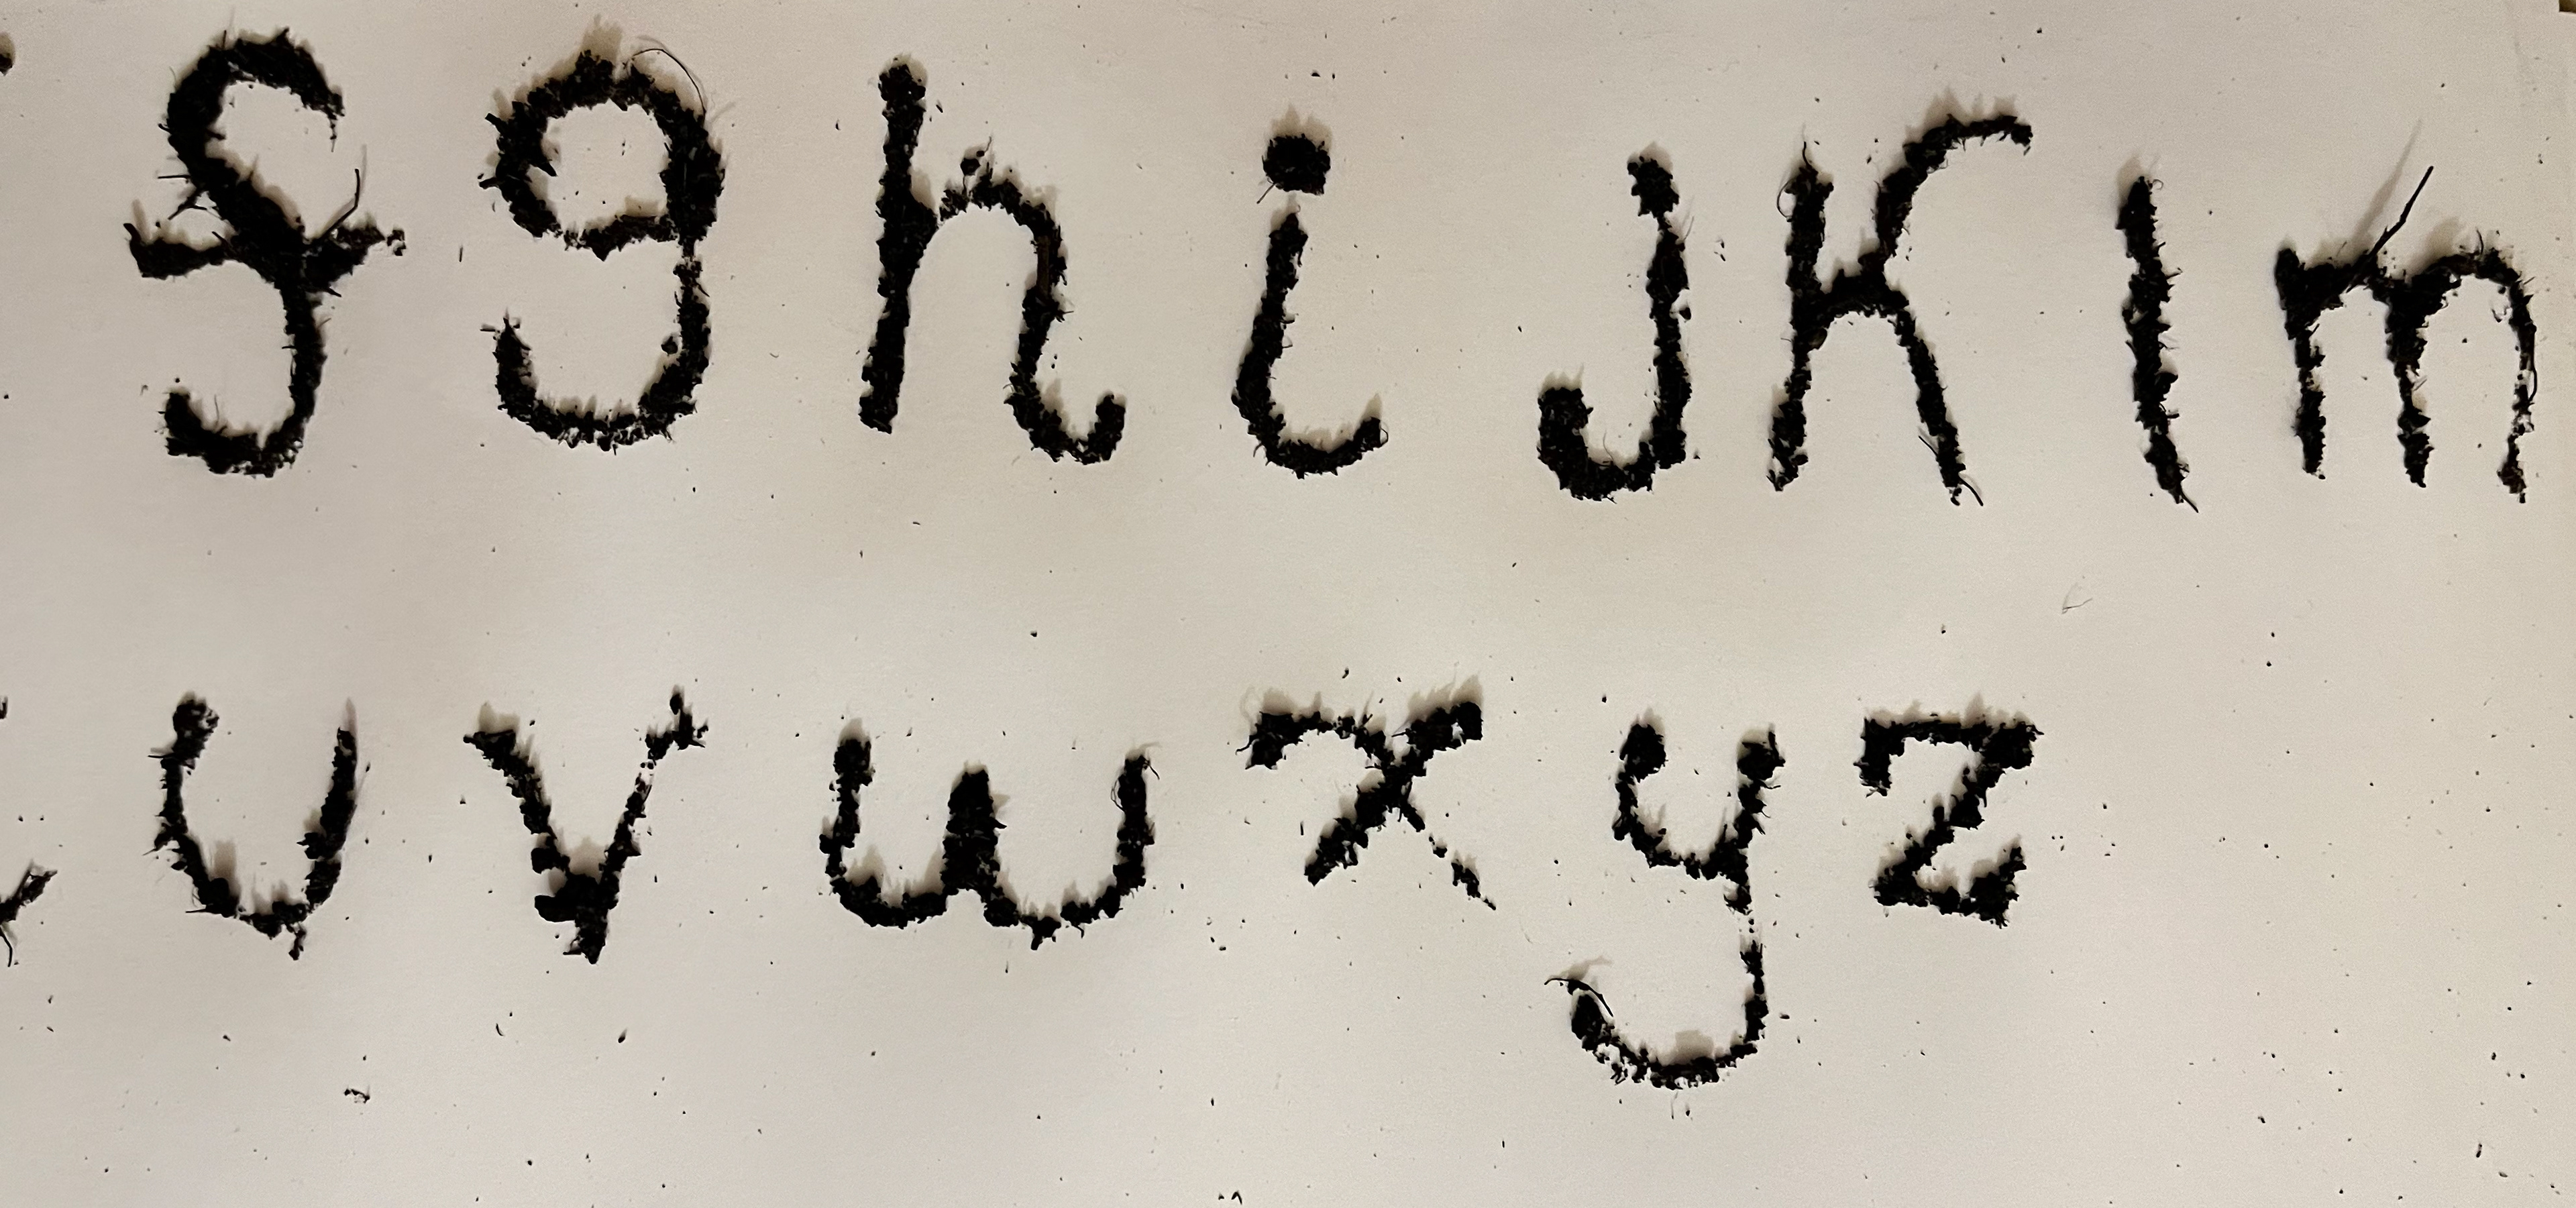 f g h i j k l m
u v w x y z